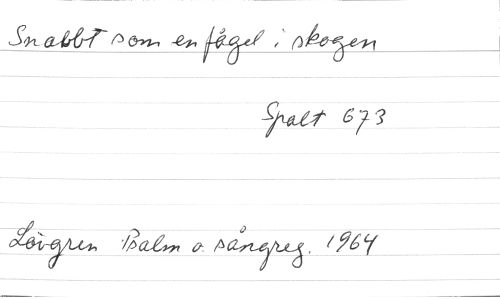 Snabbt som en fågel i skogen
Spalt 673
Lövgren Psalm o. sångreg. 1964